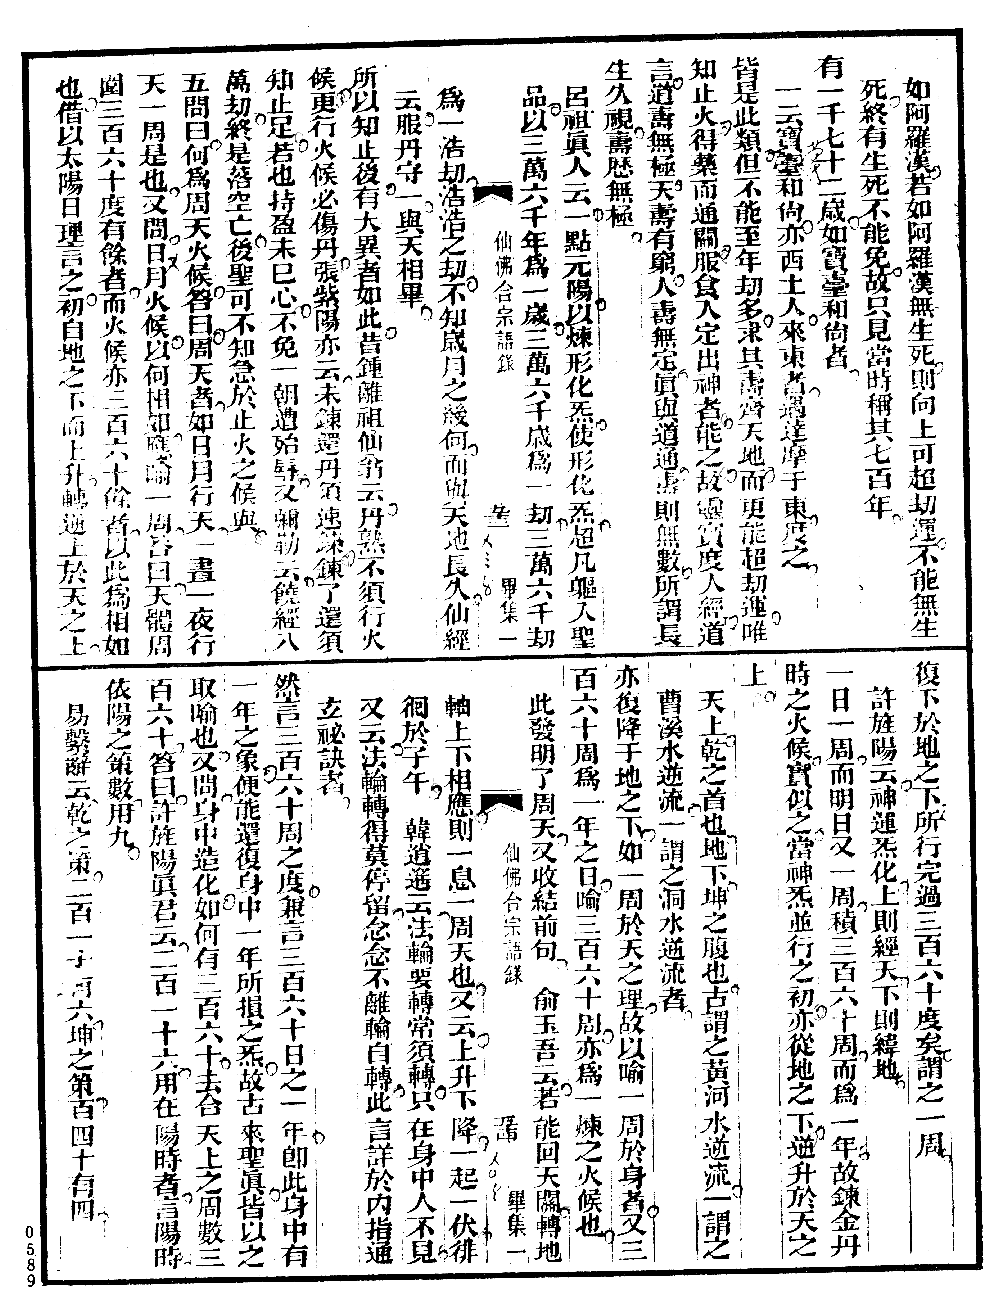 如阿羅漢若如阿羅漢無生死則向上可超劫運不能無生
死終有生死不能免故只見當時稱其七百年
有一千七十二歲如寶臺和尚者
一云寶臺和尚亦西土人來東者遇達摩于東度之
皆是此類但不能至年劫多求其壽齊天地而更能超劫運唯
知止火得藥而通關服食入定出神者能之故靈寶度人經道
言道壽無極天壽有窮人壽無定眞與道通壽則無數所謂長
生久視壽歷無極
呂祖眞人云一點元陽以煉形化炁使形化炁超凡軀入聖
品以三萬六千年爲一歲三萬六千歲爲一劫三萬六千劫
仙佛合宗語錄
畢集一
爲一浩劫浩浩之劫不知歲月之幾何而與天地長久仙經
云服丹守一與天相畢
所以知止後有大異者如此昔鍾離祖仙翁云丹熟不須行火
候更行火候必傷丹張紫陽亦云未鍊還丹須速鍊鍊了還須
知止足若也持盈未已心不免一朝遭殆辱又彌勒云饒經八
萬劫終是落空亡後聖可不知急於止火之候與
五問曰何爲周天火候答曰周天者如日月行天一晝一夜行
天一周是也又問日月火候以何相如應喻一周答曰天體周
圍三百六十度有餘者而火候亦三百六十餘者以此爲相如
也借以太陽日理言之初自地之下而上升轉逆上於天之上
復下於地之下所行完過三百六十度矣謂之一周
許旌陽云神運炁化上則經天下則緯地
一日一周而明日又一周積三百六十周而爲一年故鍊金丹
時之火候實似之當神炁並行之初亦從地之下逆升於天之
上
天上乾之首也地下坤之腹也古謂之黃河水逆流一謂之
曹溪水逆流一謂之洞水逆流者
亦復降于地之下如一周於天之理故以喻一周於身者又三
百六十周爲一年之日喻三百六十周亦爲一煉之火候也
此發明了周天又收結前句　俞玉吾云若能回天關轉地
仙佛合宗語錄
畢集一
軸上下相應則一息一周天也又云上升下降一起一伏徘
徊於子午　韓逍遙云法輪要轉常須轉只在身中人不見
又云法輪轉得莫停留念念不離輪自轉此言詳於內指通
立祕訣者
然言三百六十周之度兼言三百六十日之一年卽此身中有
一年之象便能還復身中一年所損之炁故古來聖眞皆以之
取喻也又問身中造化如何有三百六十去合天上之周數三
百六十答曰許旌陽眞君云二百一十六用在陽時者言陽時
依陽之策數用九
易繫辭云乾之策二百一十有六坤之策百四十有四
0589